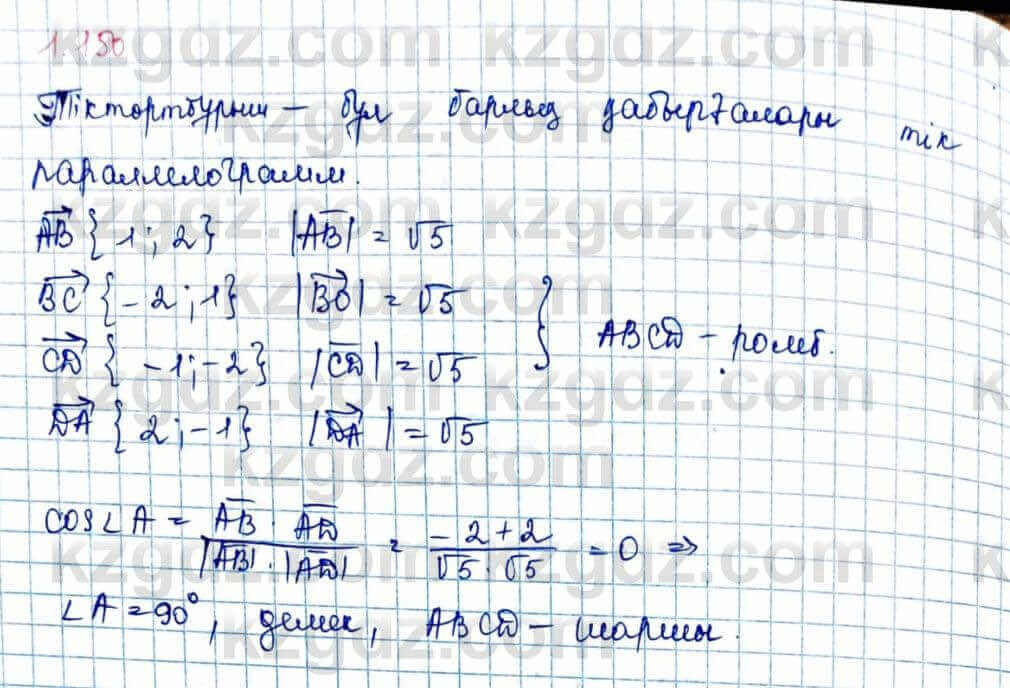 1.156
Тіктөртбұрыш – бұл барлық қабырғалары тік
параллелограмм.
AB {1; 2} |AB| = √5
BC {-2; 1} |BC| = √5
CD {-1; -2} |CD| = √5
DA {2; -1} |DA| = √5
ABCD – ромб.
cos∠A = AB · AD / |AB| · |AD| = -2+2 / √5 · √5 = 0 ⇒
∠A = 90°, демек, ABCD – шаршы.
kzgdz.com